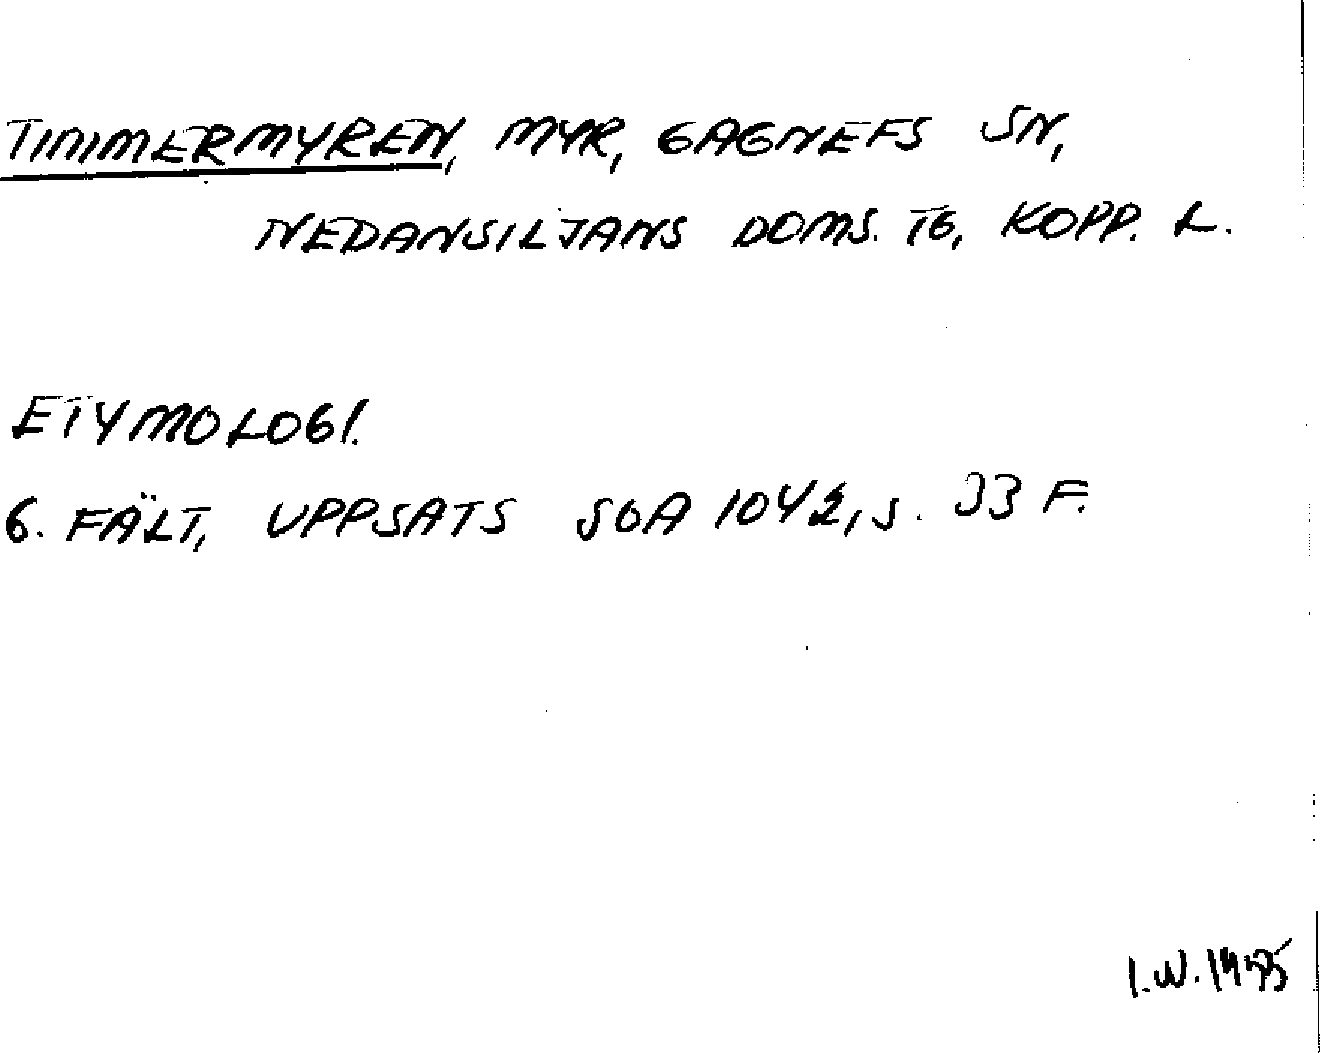 TIMMERMYREN, MYR, GAGNEFS SN,
NEDANSILJANS DOMS. TG, KOPP. L.
ETYMOLOGI.
G. FÄLT, UPPSATS SOA 1042, S. 33 F.
I.W. 1955